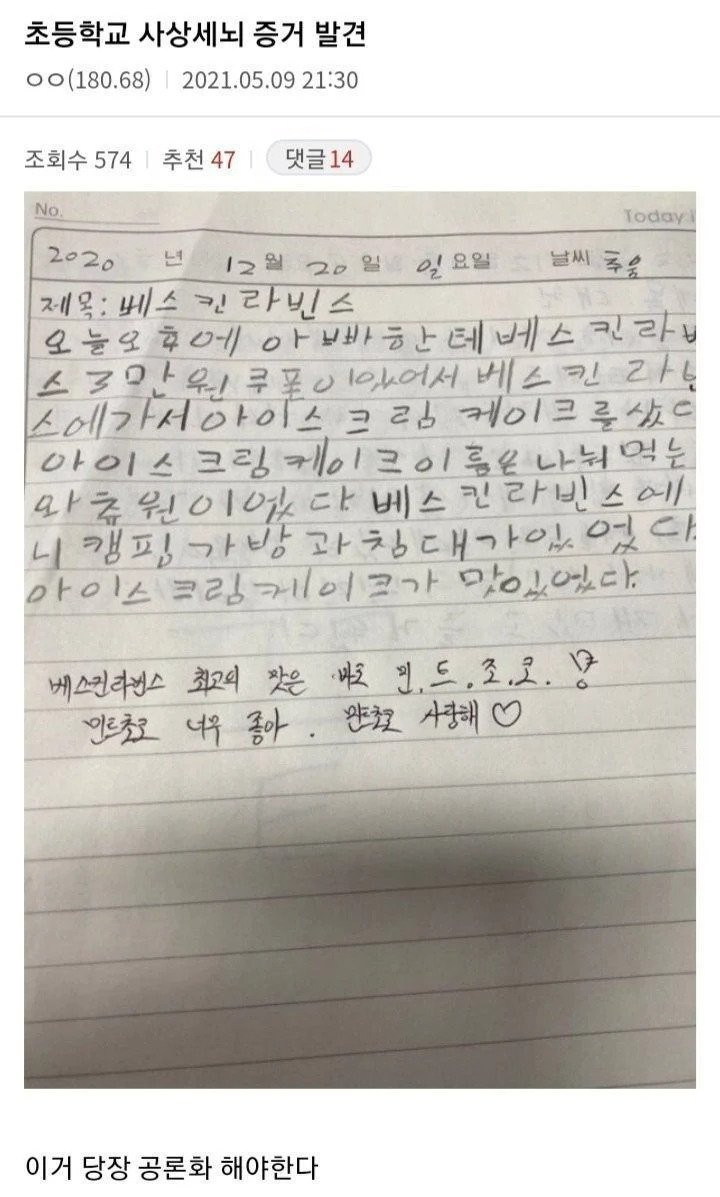 초등학교 사상세뇌 증거 발견
ㅇㅇ(180.68) | 2021.05.09 21:30
조회수 574 | 추천 47 | 댓글 14
No. Today
2020 년 12 월 20 일 일 요일 날씨 추움
제목: 베스킨라빈스
오늘오후에 아빠한테베스킨라
스 3만원쿠폰이있어서 베스킨라
스에가서아이스크림 케이크를샀
아이스크림케이크이름은 나눠먹는
와츄원이였다 베스킨라빈스에
니 캠핑가방과침대가있었다.
아이스크림케이크가 맛있었다.
베스킨라빈스 최고의 맛은 바로 민.트.초.코.
민트초코 너무 좋아. 민트초코 사랑해♡
이거 당장 공론화 해야한다